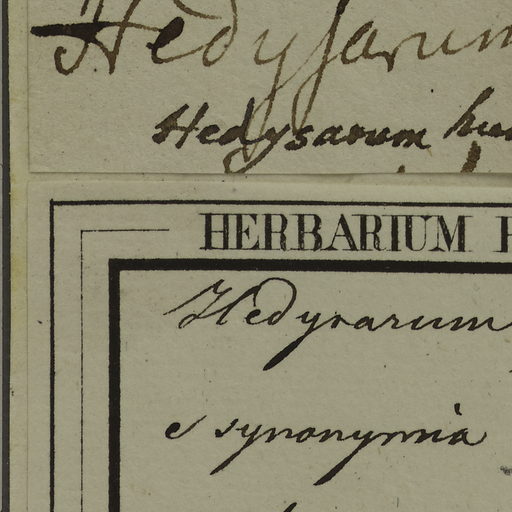 Hedysarum
Hedysarum
HERBARIUM
Hedysarum
e synonymia